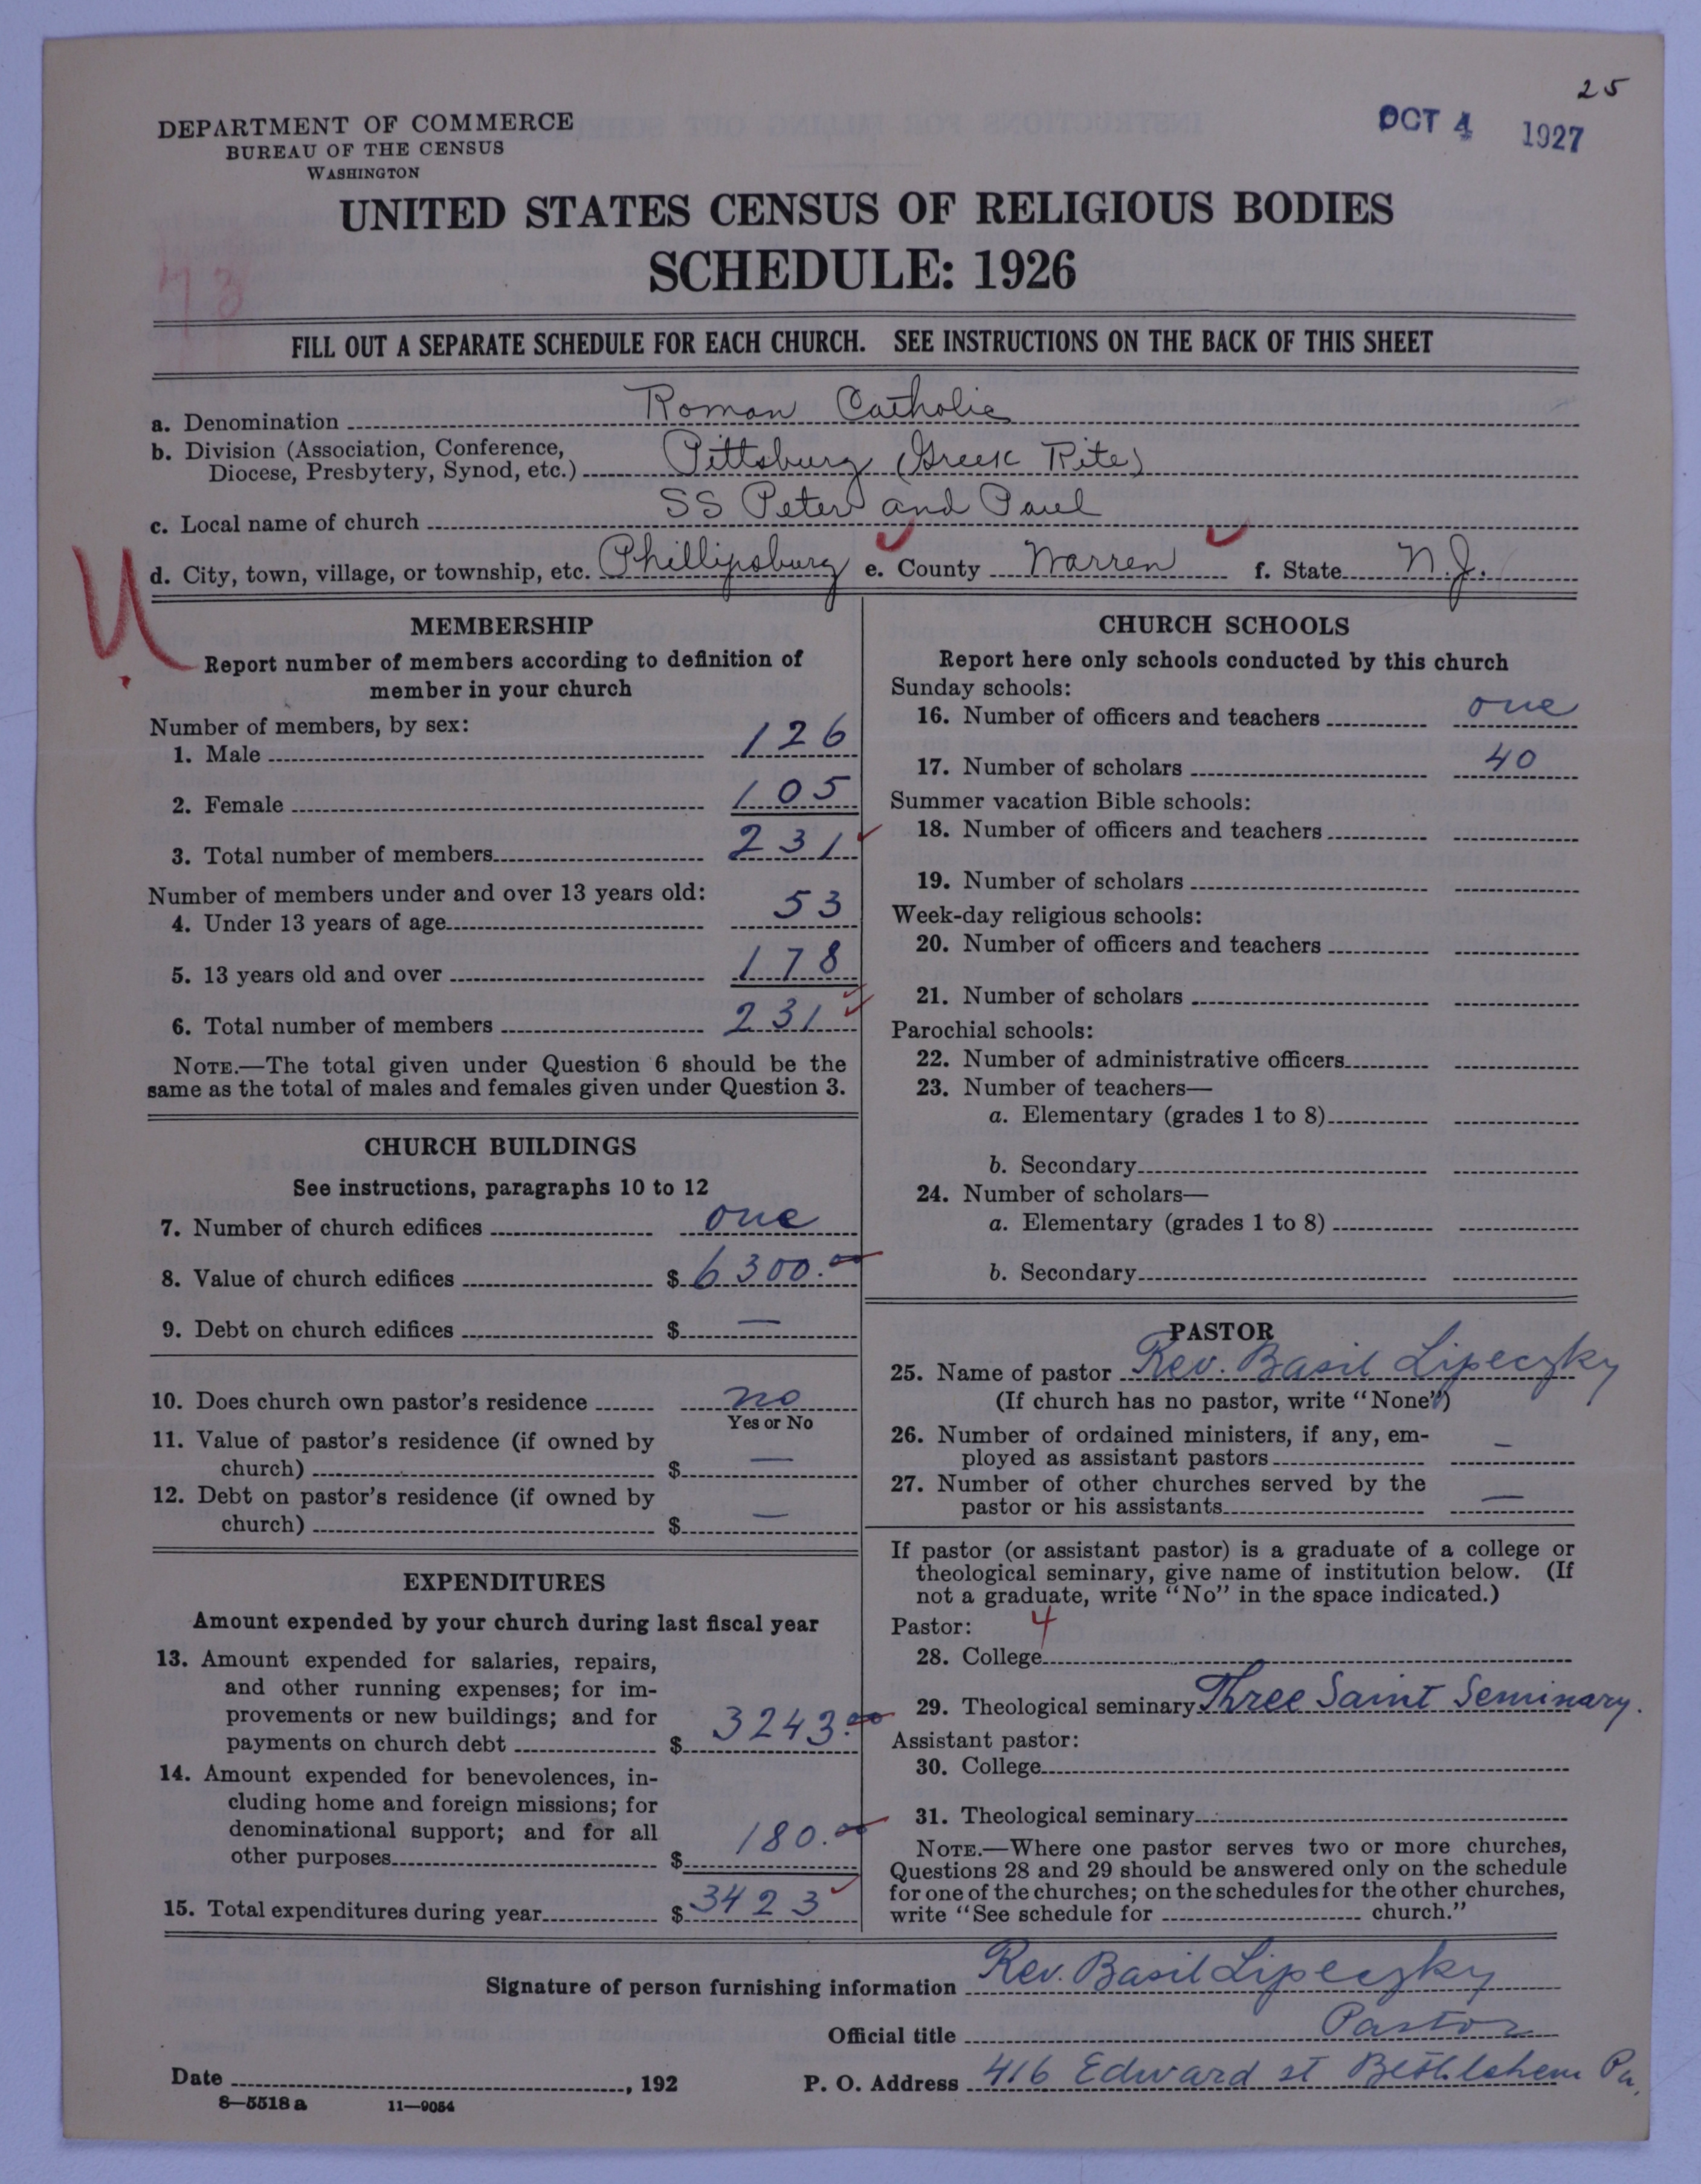 25
OCT 4 1927
DEPARTMENT OF COMMERCE
BUREAU OF THE CENSUS
WASHINGTON
UNITED STATES CENSUS OF RELIGIOUS BODIES
SCHEDULE: 1926
FILL OUT A SEPARATE SCHEDULE FOR EACH CHURCH. SEE INSTRUCTIONS ON THE BACK OF THIS SHEET
a. Denomination Roman Catholic
b. Division (Association, Conference,
Diocese, Presbytery, Synod, etc.) Pittsburg (Greek Rite)
c. Local name of church SS Peter and Paul
d. City, town, village, or township, etc. Phillipsburg e. County Warren f. State N.J.
MEMBERSHIP
Report number of members according to definition of
member in your church
Number of members, by sex:
1. Male 126
2. Female 105
3. Total number of members 231
Number of members under and over 13 years old:
4. Under 13 years of age 53
5. 13 years old and over 178
6. Total number of members 231
NOTE.—The total given under Question 6 should be the
same as the total of males and females given under Question 3.
CHURCH BUILDINGS
See instructions, paragraphs 10 to 12
7. Number of church edifices one
8. Value of church edifices $ 6300.00
9. Debt on church edifices $ —
10. Does church own pastor's residence no
Yes or No
11. Value of pastor's residence (if owned by
church) $ —
12. Debt on pastor's residence (if owned by
church) $ —
EXPENDITURES
Amount expended by your church during last fiscal year
13. Amount expended for salaries, repairs,
and other running expenses; for im-
provements or new buildings; and for
payments on church debt $ 3243.00
14. Amount expended for benevolences, in-
cluding home and foreign missions; for
denominational support; and for all
other purposes $ 180.00
15. Total expenditures during year $ 3423
CHURCH SCHOOLS
Report here only schools conducted by this church
Sunday schools:
16. Number of officers and teachers one
17. Number of scholars 40
Summer vacation Bible schools:
18. Number of officers and teachers
19. Number of scholars
Week-day religious schools:
20. Number of officers and teachers
21. Number of scholars
Parochial schools:
22. Number of administrative officers
23. Number of teachers—
a. Elementary (grades 1 to 8)
b. Secondary
24. Number of scholars—
a. Elementary (grades 1 to 8)
b. Secondary
PASTOR
25. Name of pastor Rev. Basil Lipeczky
(If church has no pastor, write "None")
26. Number of ordained ministers, if any, em-
ployed as assistant pastors —
27. Number of other churches served by the
pastor or his assistants —
If pastor (or assistant pastor) is a graduate of a college or
theological seminary, give name of institution below. (If
not a graduate, write "No" in the space indicated.)
Pastor: 4
28. College
29. Theological seminary Three Saint Seminary.
Assistant pastor:
30. College
31. Theological seminary
NOTE.—Where one pastor serves two or more churches,
Questions 28 and 29 should be answered only on the schedule
for one of the churches; on the schedules for the other churches,
write "See schedule for church."
Signature of person furnishing information Rev. Basil Lipeczky
Official title Pastor
Date , 192 P. O. Address 416 Edward st Bethlehem Pa.
8—5518 a 11—9054